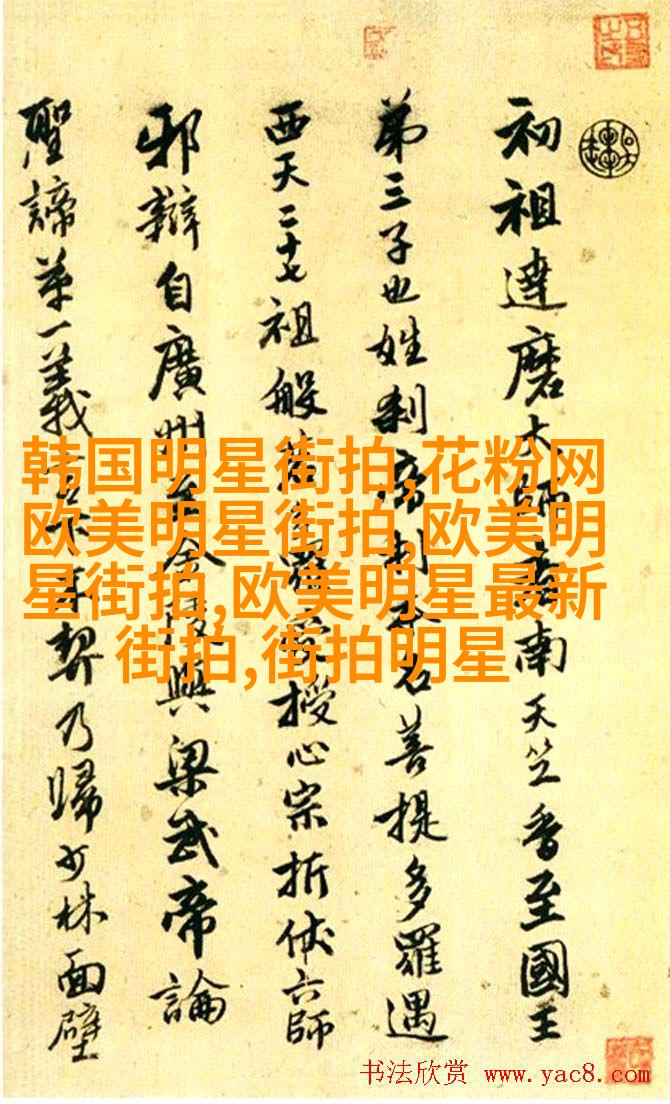 初祖達磨大師者南天竺香至國王
第三子也姓刹帝利本名菩提多羅遇
西天二十七祖般若多羅密授心宗折伏六師
邪辯自廣州至金陵與梁武帝論
聖諦第一義不契乃歸少林面壁
韩国明星街拍,花粉网
欧美明星街拍,欧美明
星街拍,欧美明星最新
街拍,街拍明星
书法欣赏 www.yac8.com